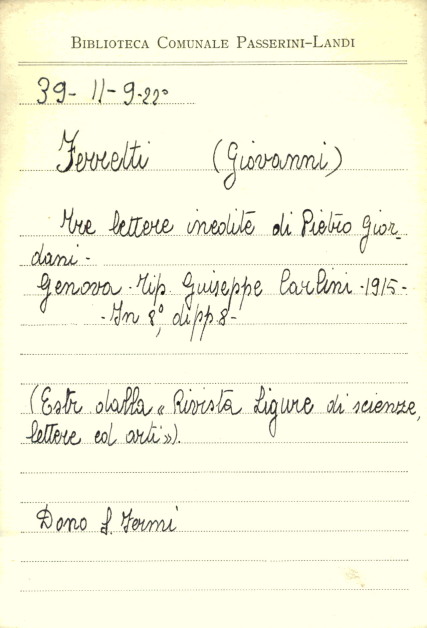 BIBLIOTECA COMUNALE PASSERINI-LANDI
39- 11-9-22°
Ferretti (Giovanni)
Tre lettere inedite di Pietro Gior-
dani-
Genova-Tip. Guiseppe Carlini-1915-
-In 8°, di pp. 8-
(Estr. dalla « Rivista Ligure di scienze,
lettere ed arti»).
Dono S. Fermi